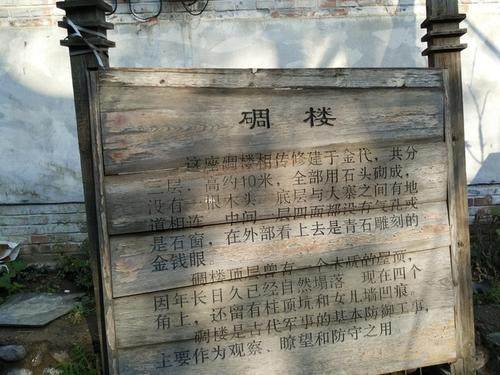 碉楼
这座碉楼相传修建于金代，共分
三层，高约10米，全部用石头砌成，
没有一根木头 底层与大寨之间有地
道相连 中间一层四面都没有气孔或
是石窗，在外部看上去是青石雕刻的
金钱眼
碉楼顶层曾有一个木质的屋顶，
因年长日久已经自然塌落 现在四个
角上，还留有柱顶坑和女儿墙凹痕
碉楼是古代军事的基本防御工事，
主要作为观察、瞭望和防守之用